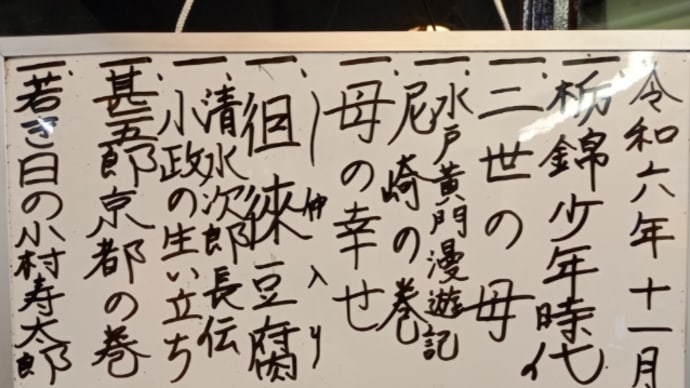 令和六年十一月
一、栃錦少年時代
一、二世の母
一、水戸黄門漫遊記
尼崎の巻
一、母の幸せ
〜仲入り
一、徂徠豆腐
一、清水次郎長伝
小政の生い立ち
一、甚五郎京都の巻
一、若き日の小村寿太郎